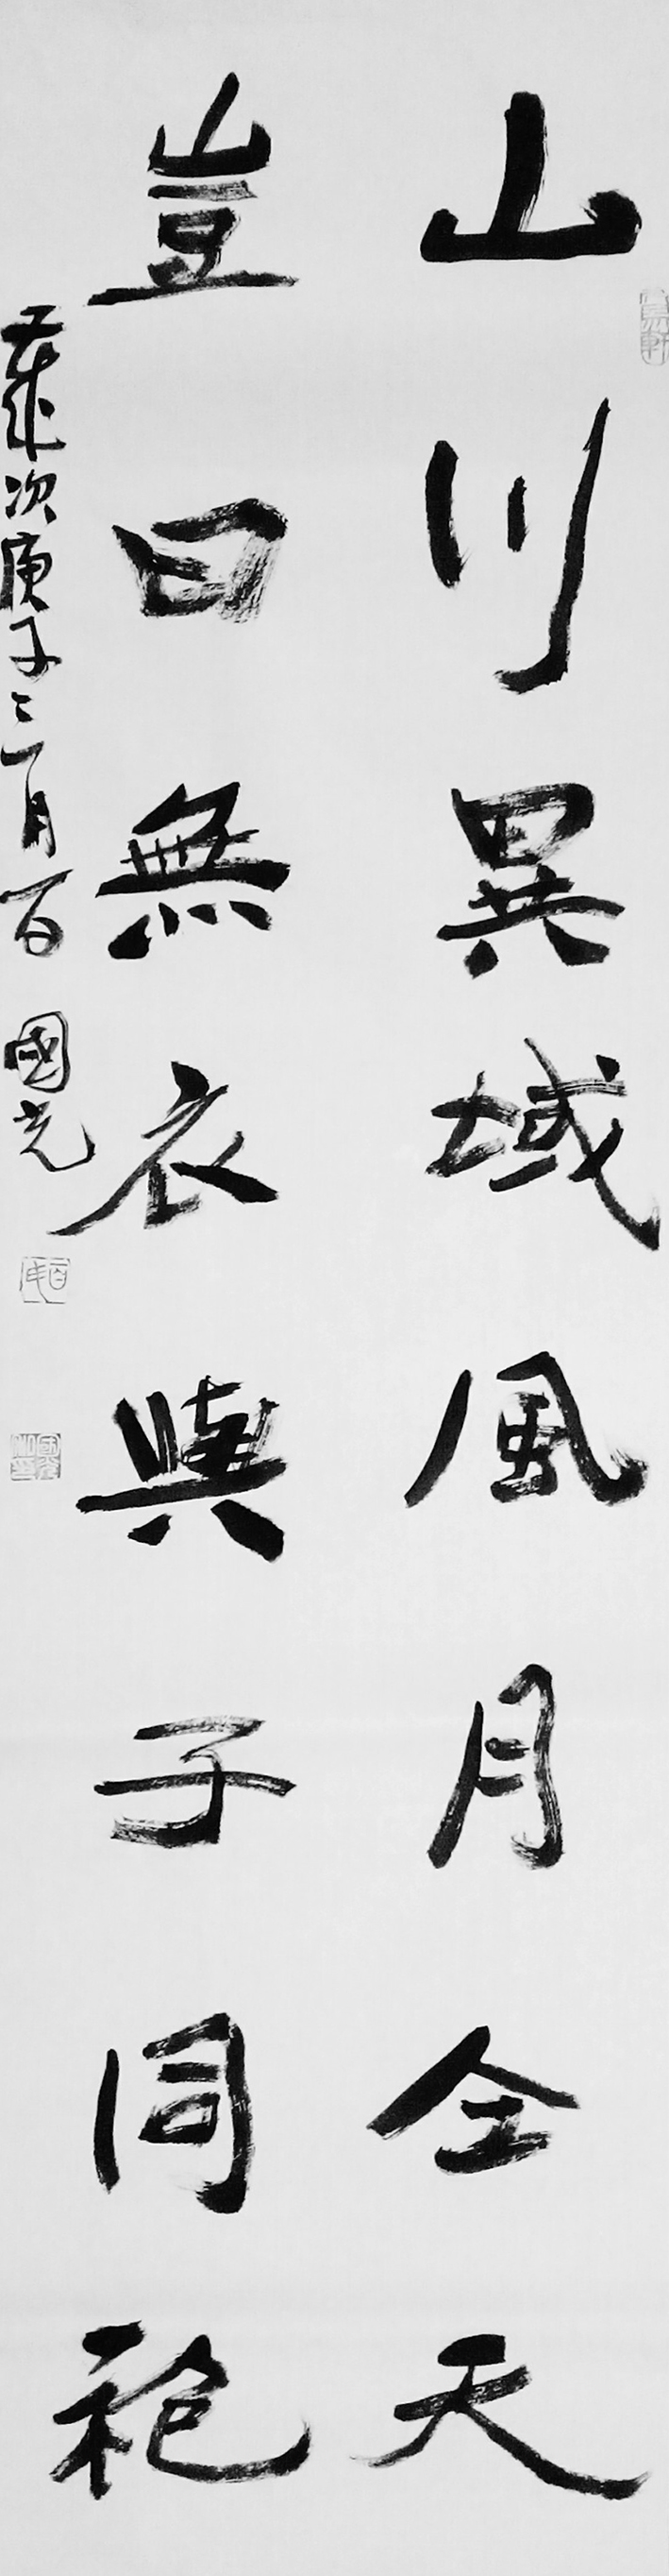 山川異域風月仝天
豈曰無衣與子同袍
歲次庚子三月 國光